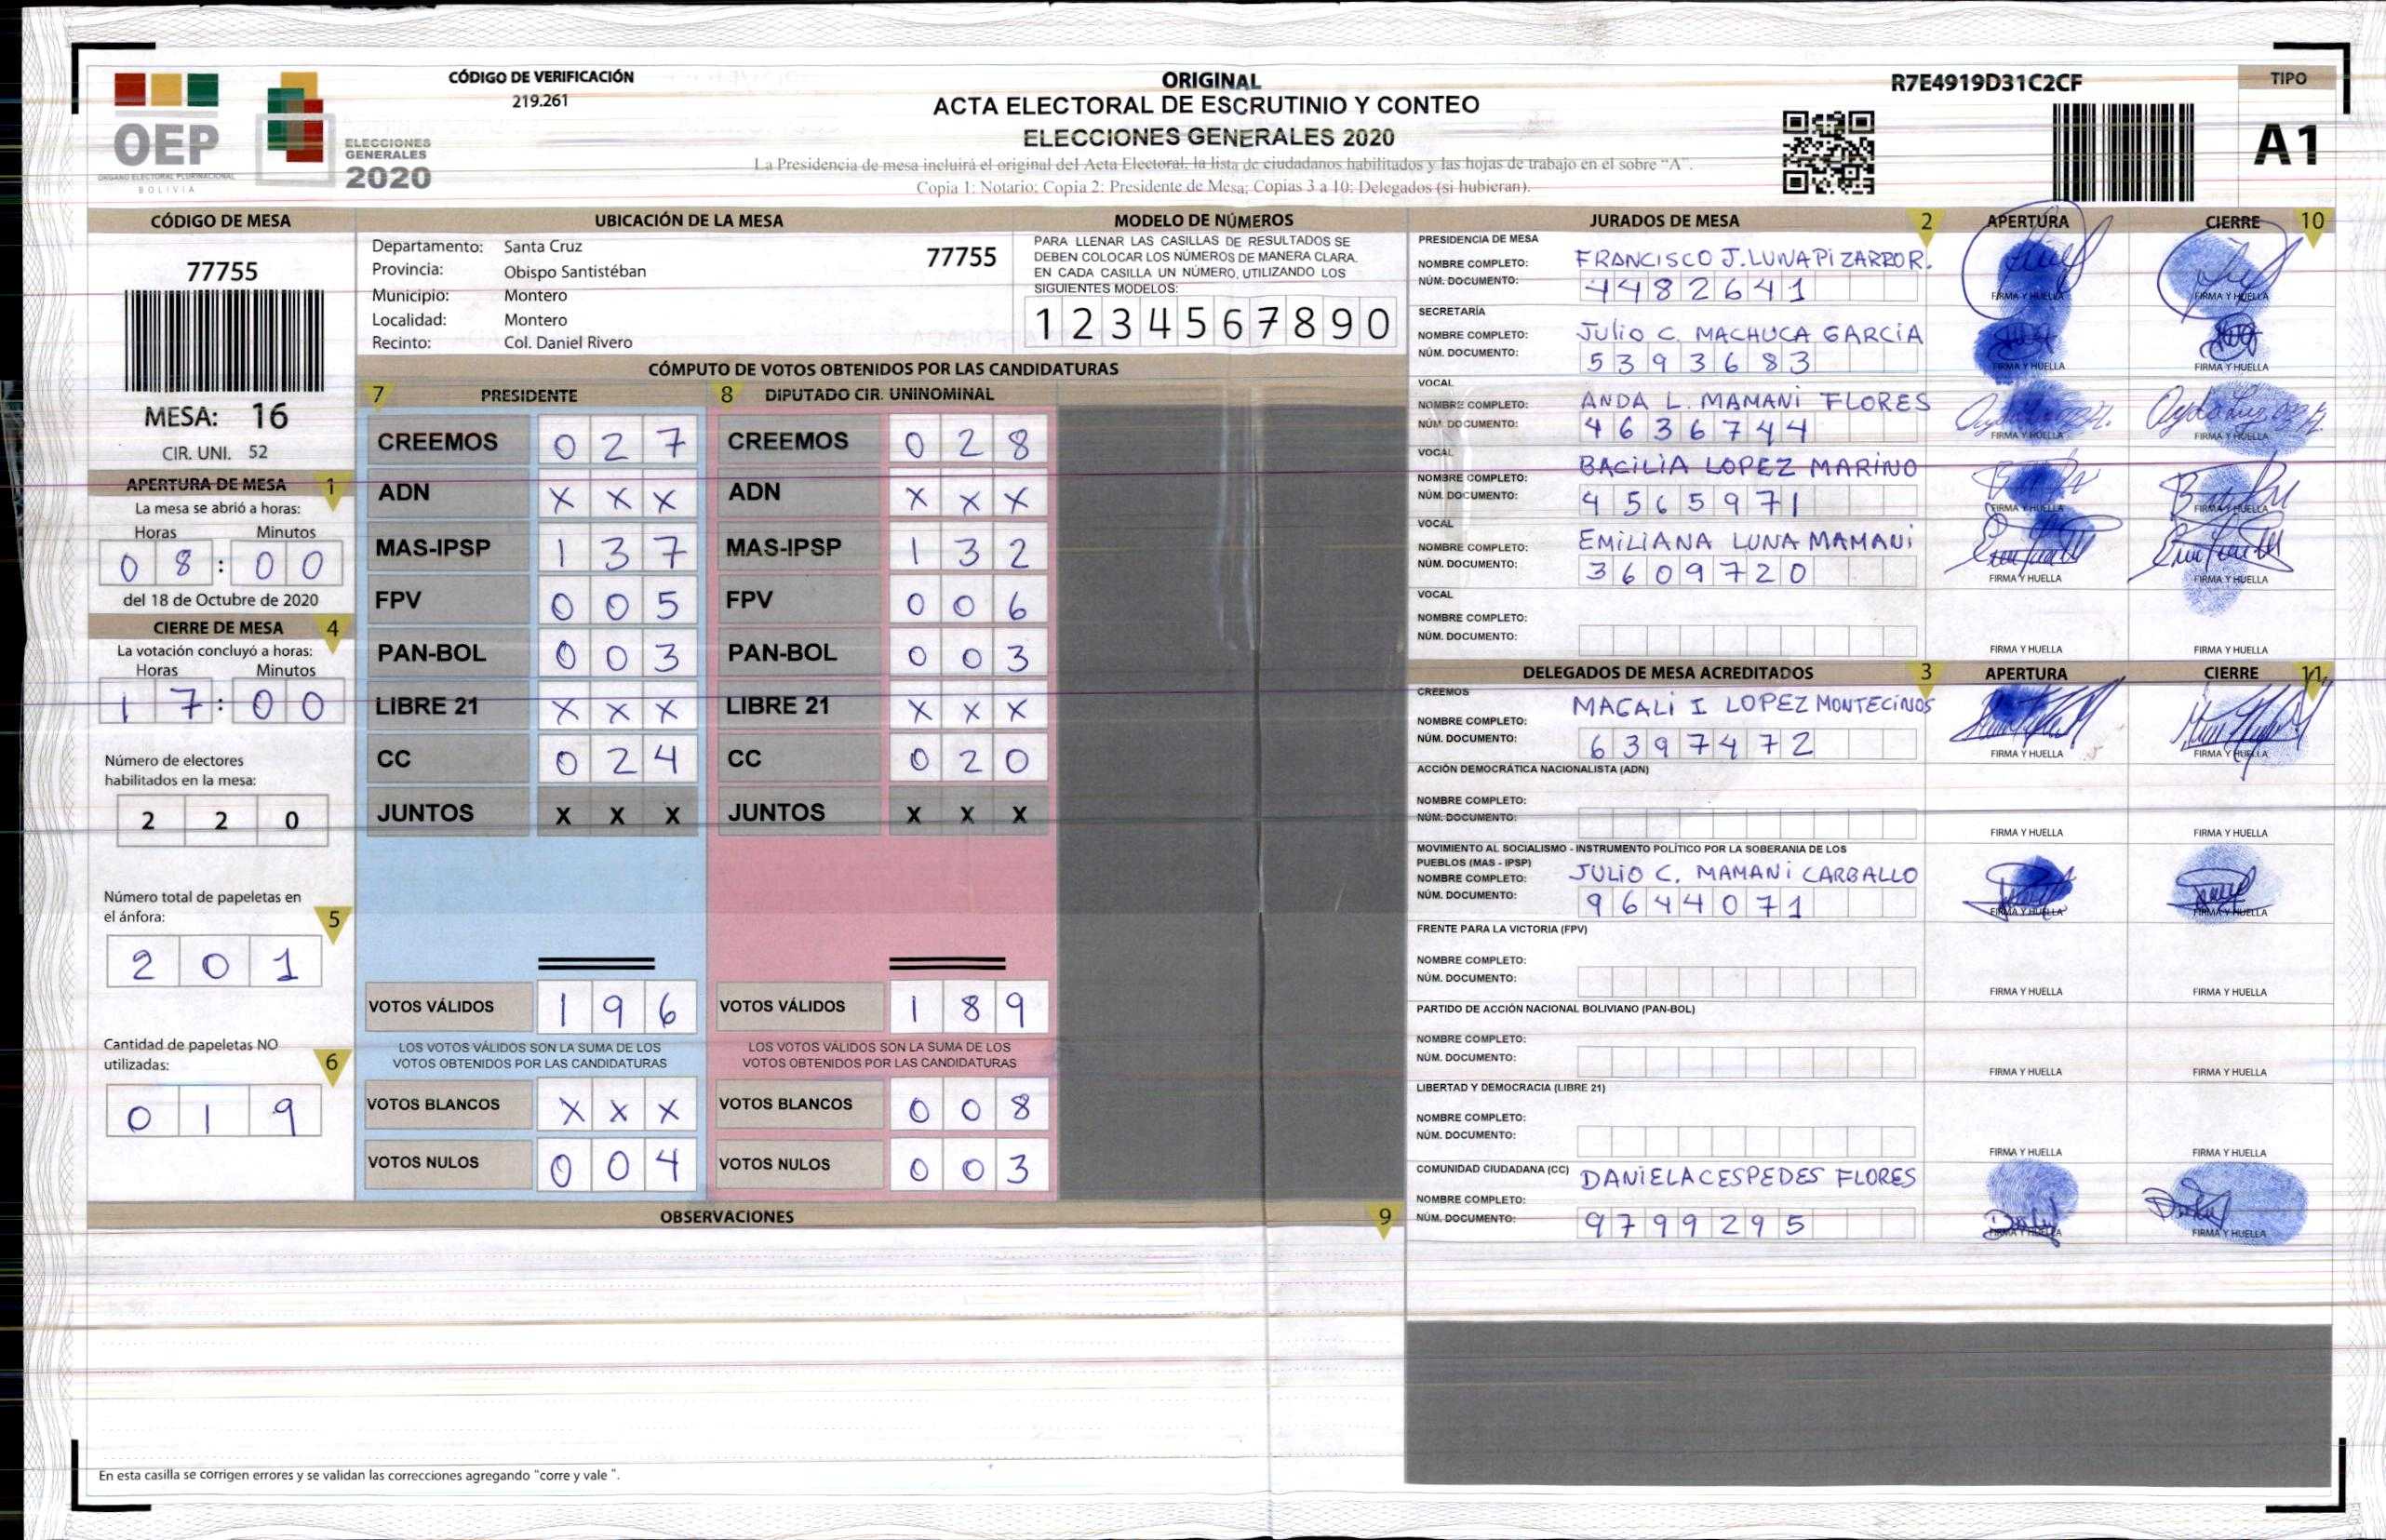 CÓDIGO DE VERIFICACIÓN
219.261
OEP
ÓRGANO ELECTORAL PLURINACIONAL
BOLIVIA
ELECCIONES
GENERALES
2020
ORIGINAL
ACTA ELECTORAL DE ESCRUTINIO Y CONTEO
ELECCIONES GENERALES 2020
La Presidencia de mesa incluirá el original del Acta Electoral, la lista de ciudadanos habilitados y las hojas de trabajo en el sobre "A".
Copia 1: Notario; Copia 2: Presidente de Mesa; Copias 3 a 10: Delegados (si hubieran).
R7E4919D31C2CF
TIPO
A1
CÓDIGO DE MESA
77755
MESA: 16
CIR. UNI. 52
APERTURA DE MESA 1
La mesa se abrió a horas:
Horas Minutos
08:00
del 18 de Octubre de 2020
CIERRE DE MESA 4
La votación concluyó a horas:
Horas Minutos
17:00
Número de electores
habilitados en la mesa:
2 2 0
Número total de papeletas en
el ánfora:
5
2 0 1
Cantidad de papeletas NO
utilizadas:
6
0 1 9
UBICACIÓN DE LA MESA
Departamento: Santa Cruz
77755
Provincia: Obispo Santistéban
Municipio: Montero
Localidad: Montero
Recinto: Col. Daniel Rivero
MODELO DE NÚMEROS
PARA LLENAR LAS CASILLAS DE RESULTADOS SE
DEBEN COLOCAR LOS NÚMEROS DE MANERA CLARA.
EN CADA CASILLA UN NÚMERO, UTILIZANDO LOS
SIGUIENTES MODELOS:
1 2 3 4 5 6 7 8 9 0
CÓMPUTO DE VOTOS OBTENIDOS POR LAS CANDIDATURAS
7 PRESIDENTE 8 DIPUTADO CIR. UNINOMINAL
CREEMOS 0 2 7 CREEMOS 0 2 8
ADN X X X ADN X X X
MAS-IPSP 1 3 7 MAS-IPSP 1 3 2
FPV 0 0 5 FPV 0 0 6
PAN-BOL 0 0 3 PAN-BOL 0 0 3
LIBRE 21 X X X LIBRE 21 X X X
CC 0 2 4 CC 0 2 0
JUNTOS X X X JUNTOS X X X
VOTOS VÁLIDOS 1 9 6 VOTOS VÁLIDOS 1 8 9
LOS VOTOS VÁLIDOS SON LA SUMA DE LOS LOS VOTOS VÁLIDOS SON LA SUMA DE LOS
VOTOS OBTENIDOS POR LAS CANDIDATURAS VOTOS OBTENIDOS POR LAS CANDIDATURAS
VOTOS BLANCOS X X X VOTOS BLANCOS 0 0 8
VOTOS NULOS 0 0 4 VOTOS NULOS 0 0 3
OBSERVACIONES 9
En esta casilla se corrigen errores y se validan las correcciones agregando "corre y vale ".
JURADOS DE MESA 2 APERTURA CIERRE 10
PRESIDENCIA DE MESA
NOMBRE COMPLETO: FRANCISCO J. LUNA PIZARRO R.
NÚM. DOCUMENTO: 4482641
FIRMA Y HUELLA FIRMA Y HUELLA
SECRETARÍA
NOMBRE COMPLETO: JULIO C. MACHUCA GARCIA
NÚM. DOCUMENTO: 5393683
FIRMA Y HUELLA FIRMA Y HUELLA
VOCAL
NOMBRE COMPLETO: ANDA L. MAMANI FLORES
NÚM. DOCUMENTO: 4636744
FIRMA Y HUELLA FIRMA Y HUELLA
VOCAL
NOMBRE COMPLETO: BACILIA LOPEZ MARINO
NÚM. DOCUMENTO: 4565971
FIRMA Y HUELLA FIRMA Y HUELLA
VOCAL
NOMBRE COMPLETO: EMILIANA LUNA MAMANI
NÚM. DOCUMENTO: 3609720
FIRMA Y HUELLA FIRMA Y HUELLA
VOCAL
NOMBRE COMPLETO:
NÚM. DOCUMENTO:
FIRMA Y HUELLA FIRMA Y HUELLA
DELEGADOS DE MESA ACREDITADOS 3 APERTURA CIERRE 11
CREEMOS
NOMBRE COMPLETO: MAGALI I LOPEZ MONTECINOS
NÚM. DOCUMENTO: 6397472
FIRMA Y HUELLA FIRMA Y HUELLA
ACCIÓN DEMOCRÁTICA NACIONALISTA (ADN)
NOMBRE COMPLETO:
NÚM. DOCUMENTO:
FIRMA Y HUELLA FIRMA Y HUELLA
MOVIMIENTO AL SOCIALISMO - INSTRUMENTO POLÍTICO POR LA SOBERANIA DE LOS
PUEBLOS (MAS - IPSP)
NOMBRE COMPLETO: JULIO C. MAMANI CARBALLO
NÚM. DOCUMENTO: 9644071
FIRMA Y HUELLA FIRMA Y HUELLA
FRENTE PARA LA VICTORIA (FPV)
NOMBRE COMPLETO:
NÚM. DOCUMENTO:
FIRMA Y HUELLA FIRMA Y HUELLA
PARTIDO DE ACCIÓN NACIONAL BOLIVIANO (PAN-BOL)
NOMBRE COMPLETO:
NÚM. DOCUMENTO:
FIRMA Y HUELLA FIRMA Y HUELLA
LIBERTAD Y DEMOCRACIA (LIBRE 21)
NOMBRE COMPLETO:
NÚM. DOCUMENTO:
FIRMA Y HUELLA FIRMA Y HUELLA
COMUNIDAD CIUDADANA (CC)
NOMBRE COMPLETO: DANIELA CESPEDES FLORES
NÚM. DOCUMENTO: 9799295
FIRMA Y HUELLA FIRMA Y HUELLA